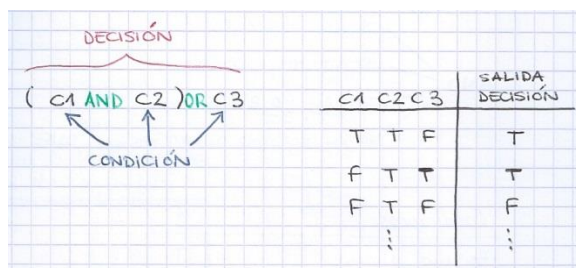 DECISIÓN
( C1 AND C2 ) OR C3
CONDICIÓN
C1 C2 C3 SALIDA DECISIÓN
T T F T
F T T T
F T F F
⋮ ⋮